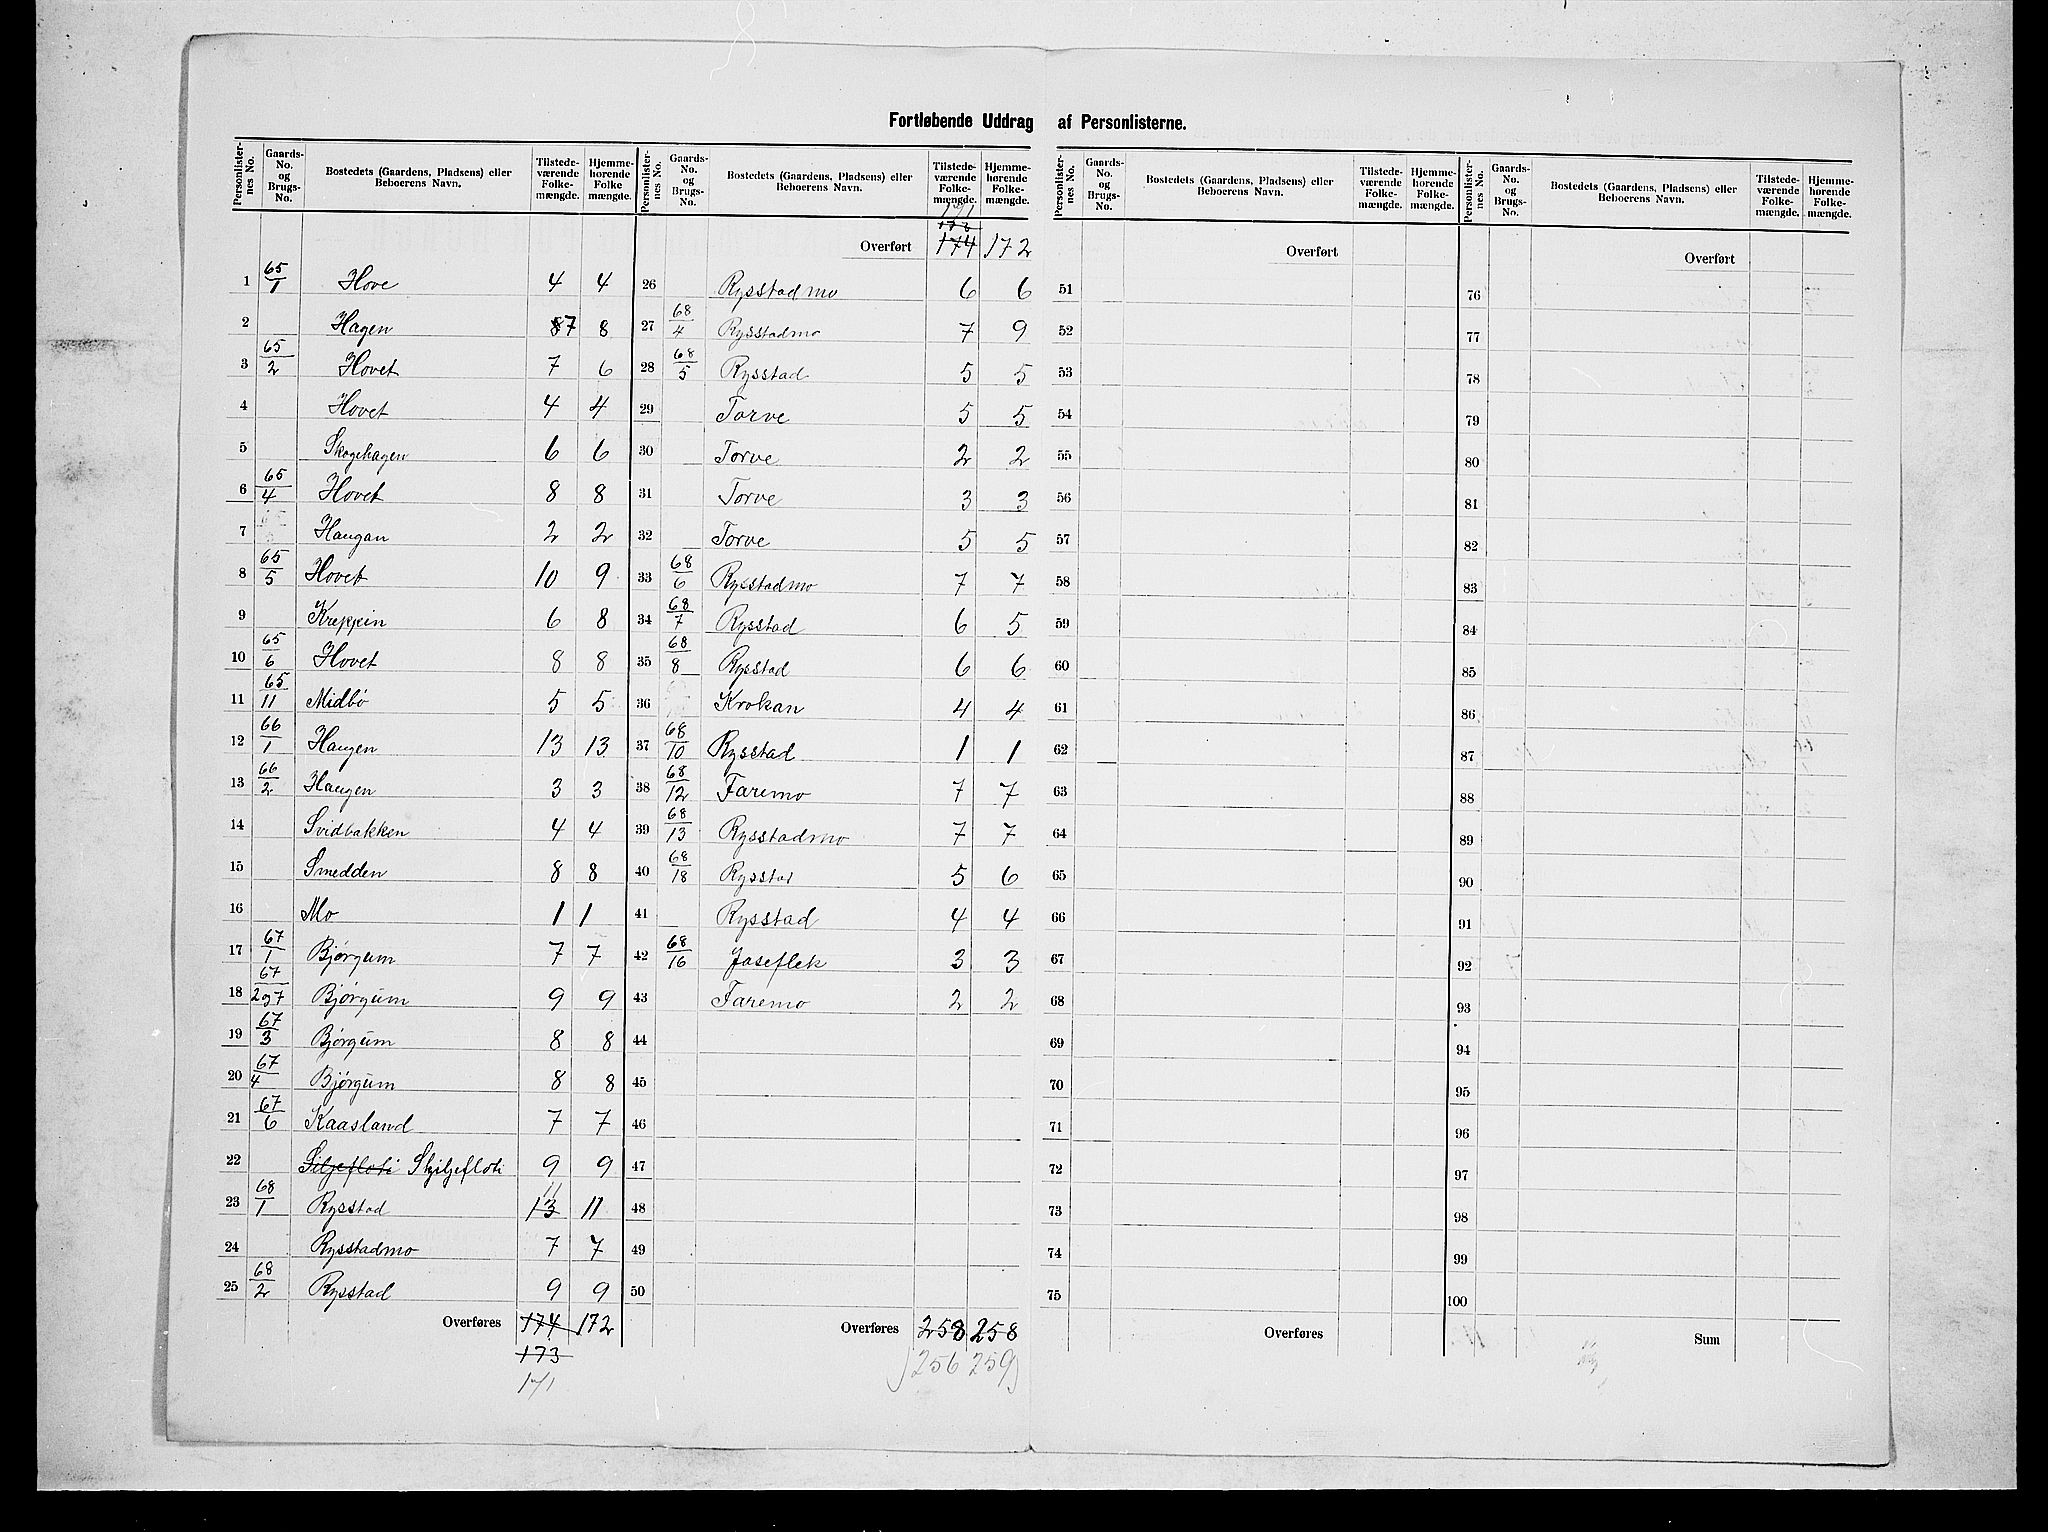 Fortløbende Uddrag af Personlisterne.
Personlister-nes No. Gaards-No. og Brugs-No. Bostedets (Gaardens, Pladsens) eller Beboerens Navn. Tilstede-værende Folke-mængde. Hjemme-hørende Folke mængde.
1 65/1 Hove 4 4
2 Hagen 87 8
3 65/2 Hovet 7 6
4 Hovet 4 4
5 Skogehagen 6 6
6 65/4 Hovet 8 8
7 Haugan 2 2
8 65/5 Hovet 10 9
9 Kreppin 6 8
10 65/6 Hovet 8 8
11 65/11 Midbø 5 5
12 66/1 Haugen 13 13
13 66/2 Haugen 3 3
14 Svidbakken 4 4
15 Smedden 8 8
16 Mo 1 1
17 67/1 Bjørgum 7 7
18 67/2 og 7 Bjørgum 9 9
19 67/3 Bjørgum 8 8
20 67/4 Bjørgum 8 8
21 67/6 Kaasland 7 7
22 Siljefloti Skjiljefloti 9 9
23 68/1 Rysstad 13 11 11
24 Rysstadmo 7 7
25 68/2 Rysstad 9 9
Overføres 174 172
173
171
Personlister-nes No. Gaards-No. og Brugs-No. Bostedets (Gaardens, Pladsens) eller Beboerens Navn. Tilstede-værende Folke-mængde. Hjemme-hørende Folke-mængde.
171
173
Overført 174 172
26 Rysstadmo 6 6
27 68/4 Rysstadmo 7 9
28 68/5 Rysstad 5 5
29 Torve 5 5
30 Torve 2 2
31 Torve 3 3
32 Torve 5 5
33 68/6 Rysstadmo 7 7
34 68/7 Rysstad 6 5
35 68/8 Rysstad 6 6
36 Krokan 4 4
37 68/10 Rysstad 1 1
38 68/12 Faremo 7 7
39 68/13 Rysstadmo 7 7
40 68/18 Rysstad 5 6
41 Rysstad 4 4
42 68/16 Joseflek 3 3
43 Faremo 2 2
44
45
46
47
48
49
50
Overføres 258 258
256 259
Personlister-nes No. Gaards-No. og Brugs-No. Bostedets (Gaardens, Pladsens) eller Beboerens Navn. Tilstede-værende Folke-mængde. Hjemme-hørende Folke-mængde.
Overført
51
52
53
54
55
56
57
58
59
60
61
62
63
64
65
66
67
68
69
70
71
72
73
74
75
Overføres
Personlister-nes No. Gaards-No. og Brugs-No. Bostedets (Gaardens, Pladsens) eller Beboerens Navn. Tilstede-værende Folke-mængde. Hjemme-hørende Folke-mængde.
Overført
76
77
78
79
80
81
82
83
84
85
86
87
88
89
90
91
92
93
94
95
96
97
98
99
100
Sum